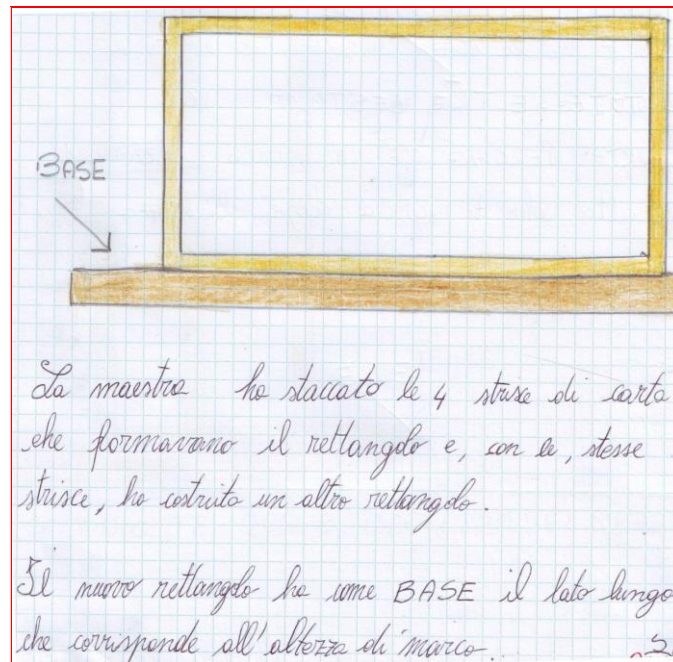 BASE
La maestra ha staccato le 4 strisce di carta
che formavano il rettangolo e, con le, stesse
strisce, ha costruito un altro rettangolo.
Il nuovo rettangolo ha come BASE il lato lungo
che corrisponde all'altezza di marco.